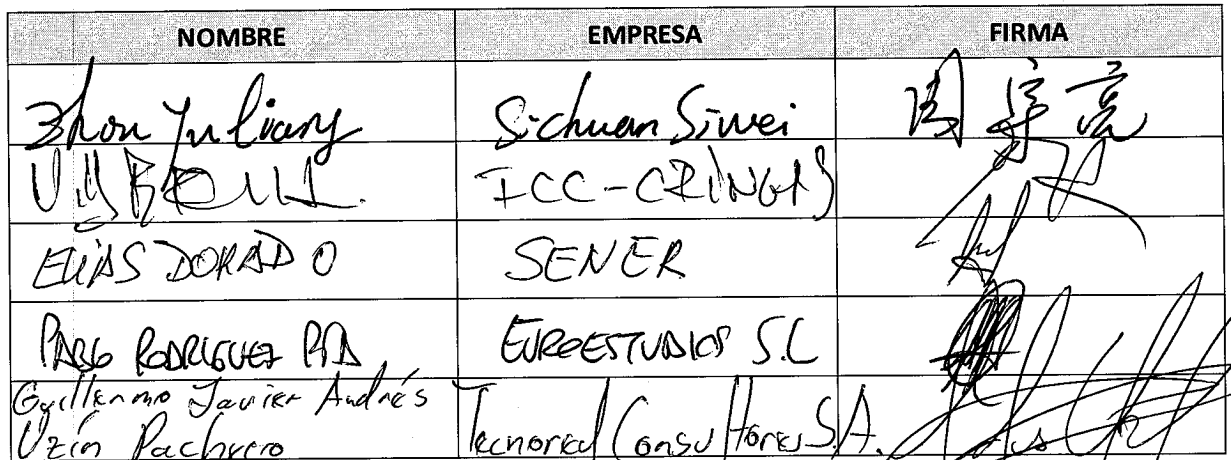 NOMBRE EMPRESA FIRMA
Zhou Yu liang Sichuan Siwei 周宇亮
ICC-CRINGAS
ELIAS DORADO SENER
PABLO RODRIGUEZ EUROESTUDIOS S.L
Guillermo Javier Andrés
Uzín Pacheco Tecnored Consultores S.A.